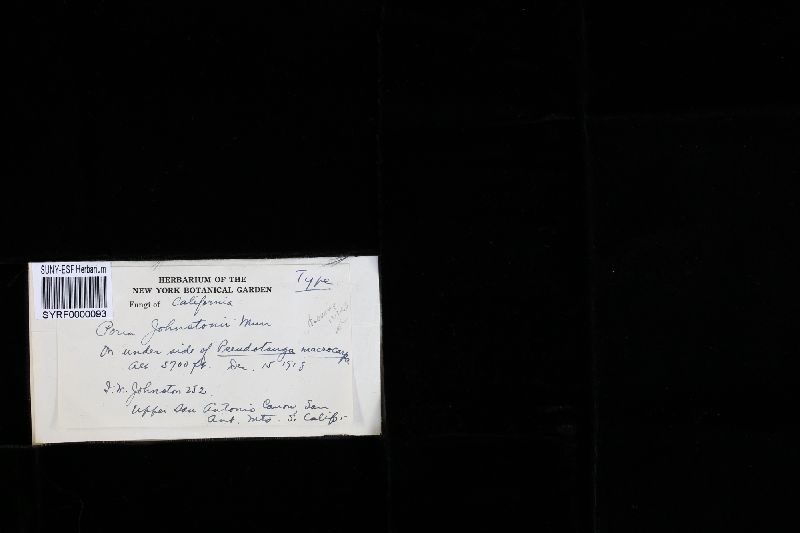 SUNY-ESF Herbarium
SYRF0000093
HERBARIUM OF THE
NEW YORK BOTANICAL GARDEN
Type
Fungi of California
Poria Johnstonii Murr
On under side of Pseudotsuga macrocarpa
Alt 5700 ft. Dec. 15 1918
I. M. Johnston 252.
Upper San Antonio Canon, San
Ant. Mts. S. Calif.